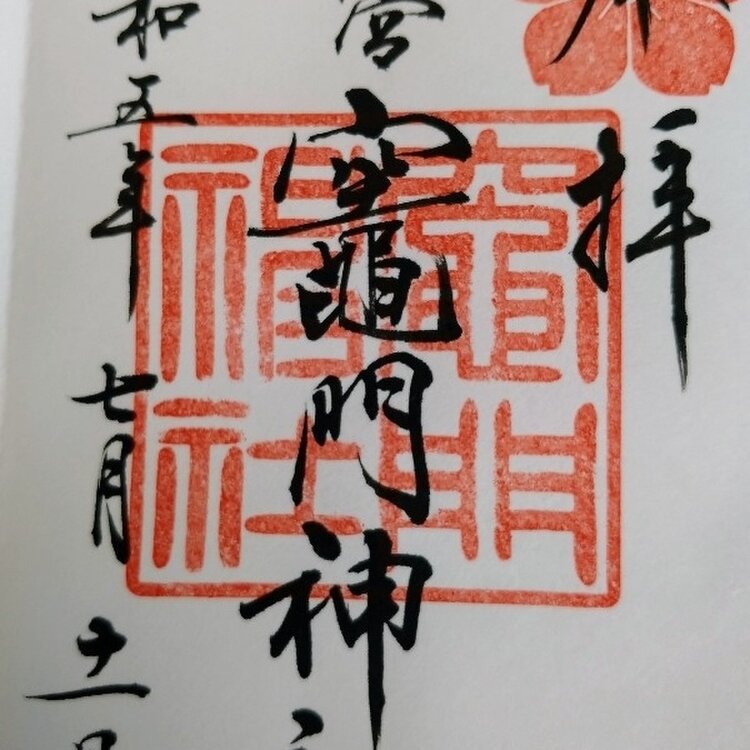 拝
宮 竈門神
和五年七月十一日
竈門
神社